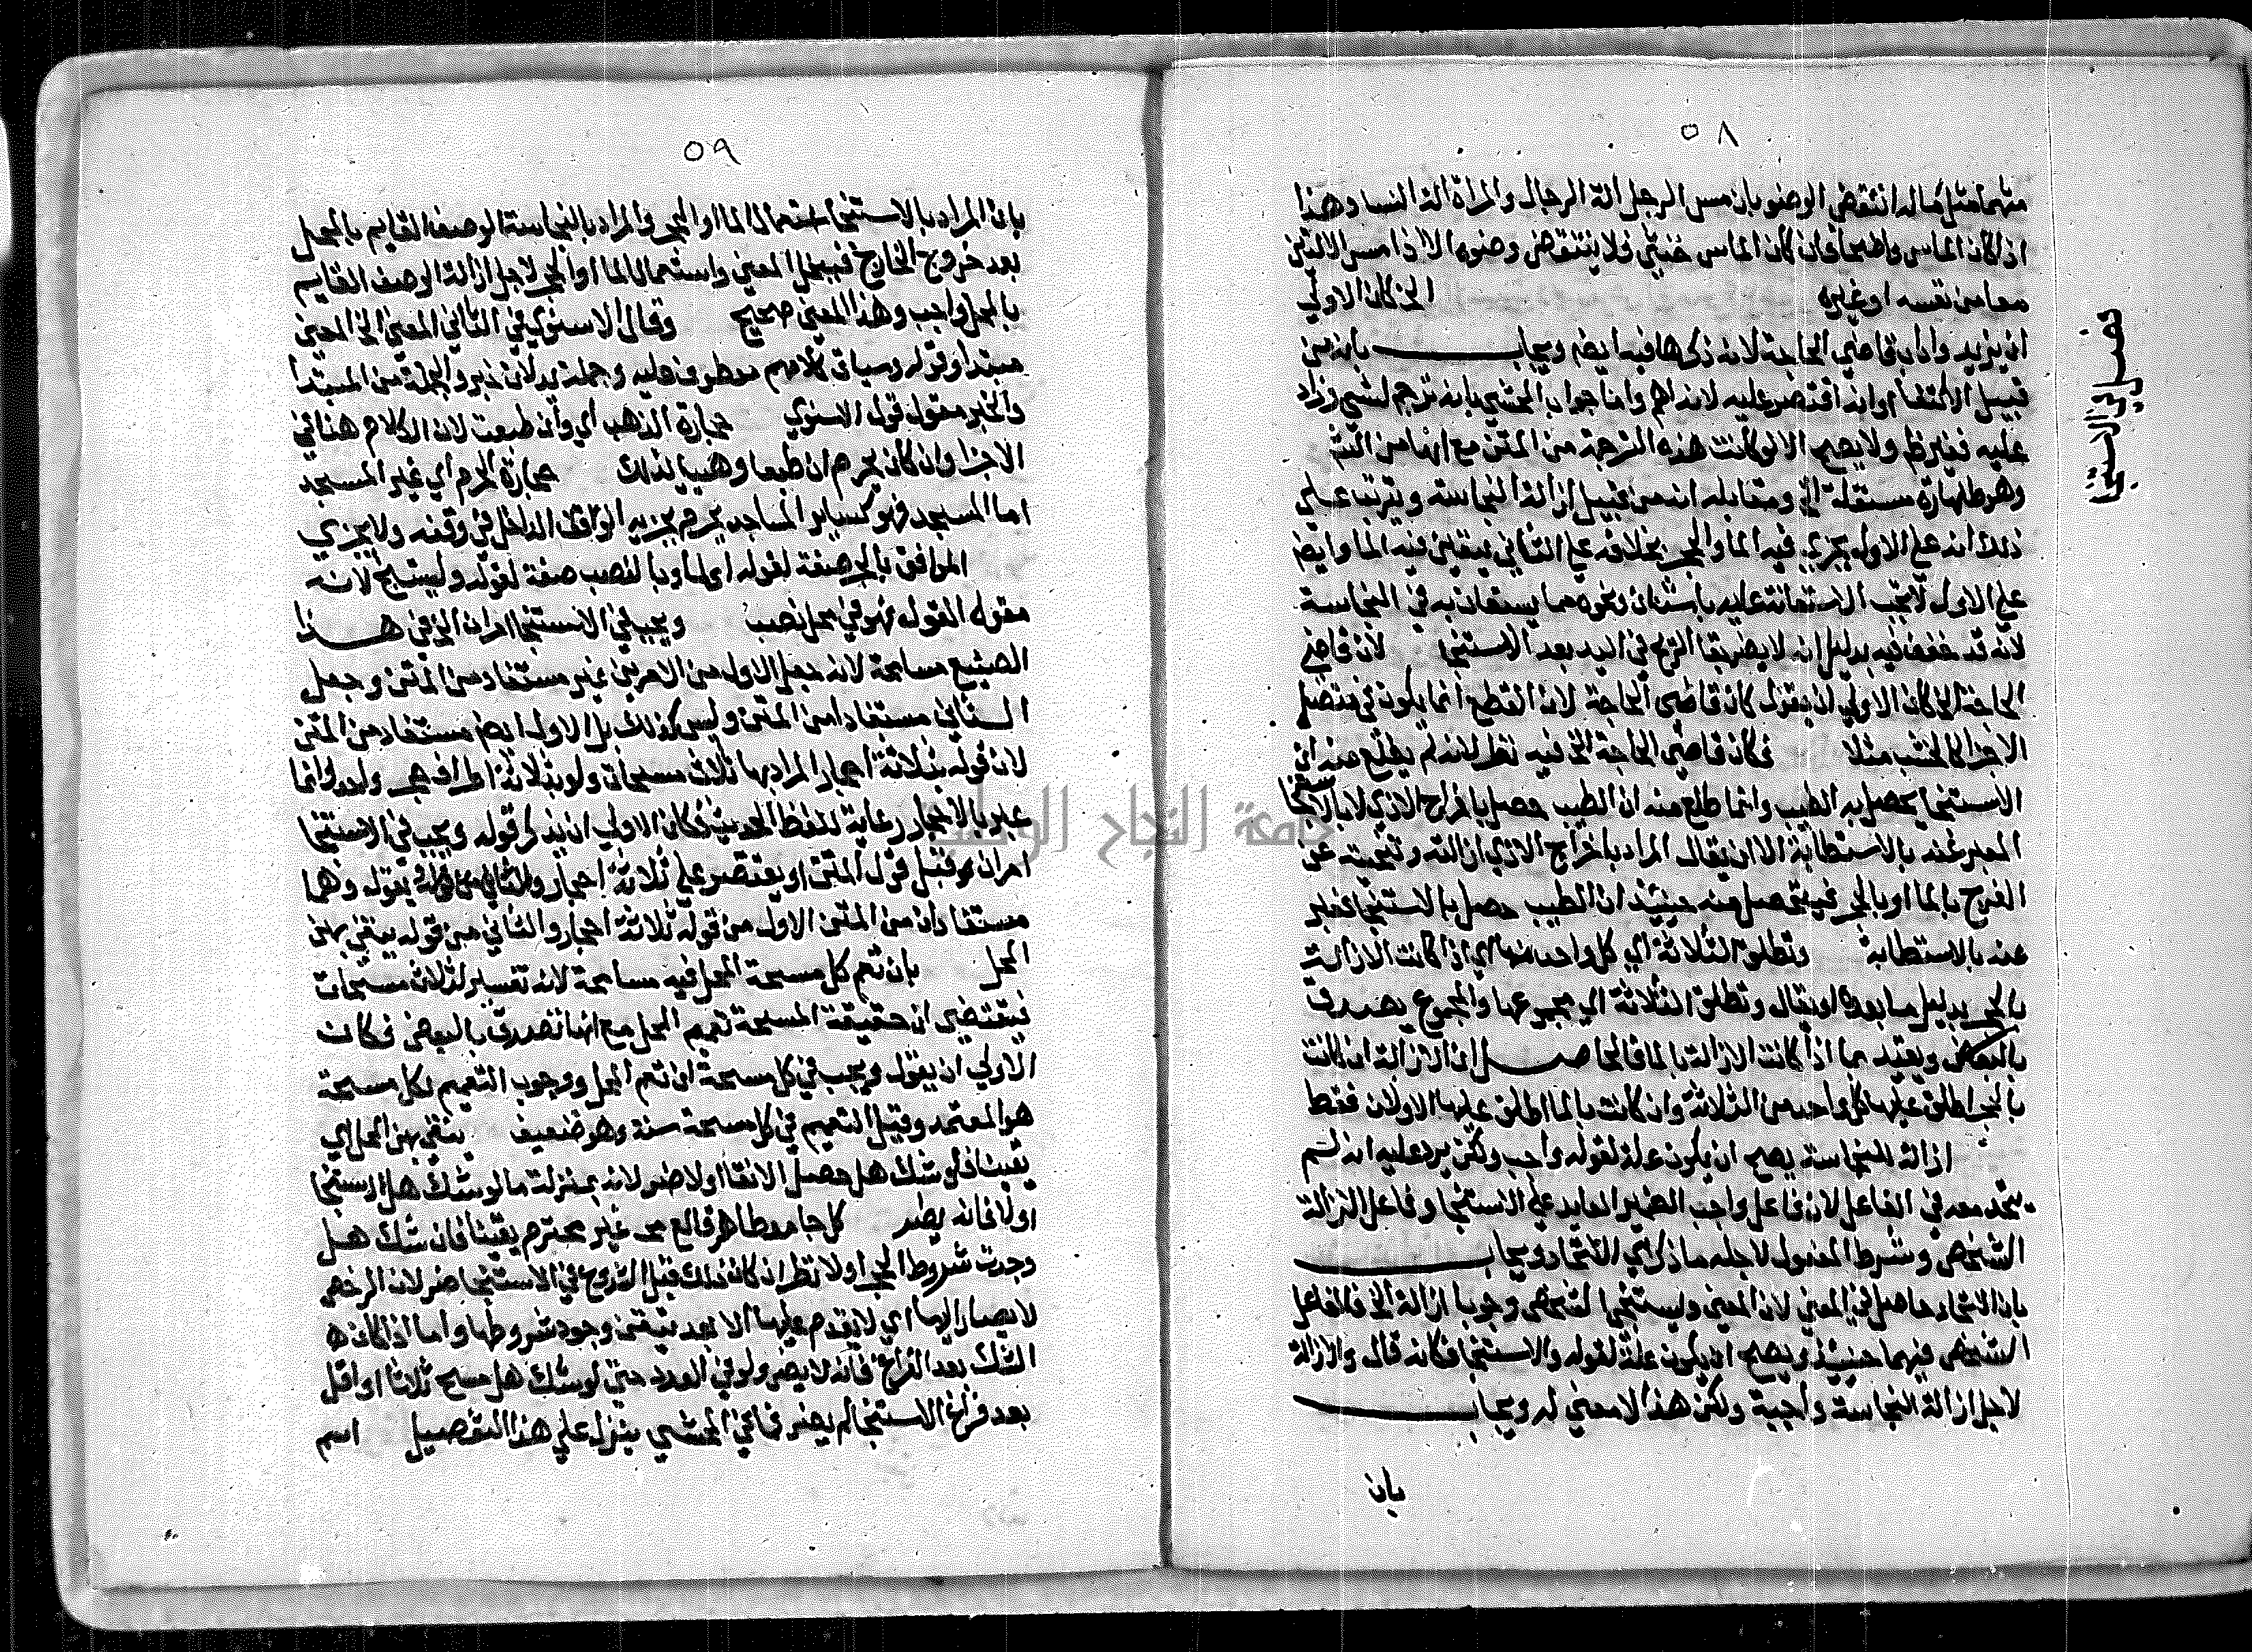 ٥٨
منهما مثل ماله انتقض الوضو بان مس الرجل الة الرجال والمراة الة النسا وهذا
اذا كان الماس واضحا فان كان الماس خنثي فلا ينتقض وضوه الا اذا مس الالتين
معا من نفسه او غيره الخ كان الاولي
ان يزيد واداب قاضي الحاجة لانه ذكرها فيه ايضا ويجاب بانه من
قبيل الاكتفا او انه اقتصر عليه لانه اهم واما جواب المحشي بانه ترجم لشي وزاد
عليه فغير ظ ولا يصح الا لو كانت هذه الترجمة من المتن مع انها من الشم
وهو طهارة مستقلة الخ ومقابله انه من قبيل ازالة النجاسة ويترتب علي
ذلك انه علي الاول يجزي فيه الما والحجر بخلافه علي الثاني يتعين فيه الما وايضا
علي الاول لا يجب الاستعانة عليه باشنان ونحوه مما يستعان به في النجاسة
لانه قد خفف فيه بدليل انه لا يضر بقا الريح في اليد بعد الاستنجا لان قاضي
الحاجة الخ كان الاولي ان يقول كان قاضي الحاجة لان القطع انما يكون في متصل
الاجزا كالخشب مثلا فكان قاضي الحاجة الخ فيه نظر لانه لم يطلع منه ان
الاستنجا يحصل به الطيب وانما طلع منه ان الطيب حصل باخراج الاذي لا بالاستنجا
المعبر عنه بالاستطابة الا ان يقال المراد باخراج الاذي ازالته وتنحيته عن
الفرج بالما او بالحجر فيتحصل منه حينئذ ان الطيب حصل بالاستنجا فعبر
عنه بالاستطابة وتطلق الثلاثة اي كل واحد منها اي اذا كانت الازالة
بالحجر بدليل ما بعده او يقال وتطلق الثلاثة اي مجموعها والمجموع يصدق
بالبعض ويقيد بما اذا كانت الازالة بالما فالحاصل ان الازالة ان كانت
بالحجر اطلق عليها كل واحد من الثلاثة وان كانت بالما اطلق عليها الاولان فقط
ازالة للنجاسة يصح ان يكون علة لقوله واجب ولكن يرد عليه انه لم
يتحد معه في الفاعل لان فاعل واجب الضمير العايد علي الاستنجا وفاعل الازالة
الشخص وشرط المفعول لاجله ما ذكر اي الاتحاد ويجاب
بان الاتحاد حاصل في المعني لان المعني ويستنجي الشخص وجوبا ازالة الخ فالفاعل
الشخص فيهما حينئذ ويصح ان يكون علة لقوله والاستنجا فكانه قال والازالة
لاجل ازالة النجاسة واجبة ولكن هذا لا معني له ويجاب
بان
فصل في الاستنجا
٥٩
بان المراد بالاستنجا استعمال الما او الحجر والمراد بالنجاسة الوصف القايم بالمحل
بعد خروج الخارج فينحل المعني واستعمال الما او الحجر لاجل ازالة الوصف القايم
بالمحل واجب وهذا المعني صحيح وقال الاسنوي في الثاني المعني الخ المعني
مبتدا وقوله وسياق كلامهم معطوف عليه وجملة يدلان خبر والجملة من المبتدا
والخبر مقول قول الاسنوي حجارة الذهب اي وان طبعت لان الكلام هنا في
الاجزا وان كان يحرم ان طبعا وهييا لذلك حجارة الحرم اي غير المسجد
اما المسجد فهو كساير المساجد يحرم بجزيه الواقف الداخل في وقفه ولا يجزي
الموافق بالجر صفة لقوله اي لما وبالنصب صفة لقوله وليستنج لانه
مقول القول فهو في محل نصب ويجب في الاستنجا امران الخ في هذا
الصنيع مسامحة لانه جعل الاول من الامرين غير مستفاد من المتن وجعل
الثاني مستفادا من المتن وليس كذلك بل الاول ايضا مستفاد من المتن
لان قوله بثلاثة احجار المراد بها ثلاث مسحات ولو بثلاثة اطراف حجر واحد وانما
عبر بالاحجار رعاية للفظ الحديث فكان الاولي ان يذكر قوله ويجب في الاستنجا
امران قبل قول المتن او يقتصر علي ثلاثة احجار يقول وهما
مستفادان من المتن الاول من قوله ثلاثة احجار والثاني من قوله ينقي بهن
المحل بان تعم كل مسحة المحل فيه مسامحة لانه تفسير لثلاث مسحات
فيقتضي ان حقيقة المسحة تعميم المحل مع انها تصدق بالبعض فكان
الاولي ان يقول ويجب في كل مسحة ان تعم المحل ووجوب التعميم بكل مسحة
هو المعتمد وقيل التعميم في كل مسحة سنة وهو ضعيف ينقي بهن المحل اي
يقينا فلو شك هل حصل الانقا او لا ضر لانه بمنزلة ما لو شك هل استنجا
او لا فانه يضر كل جامد طاهر قالع غير محترم يقينا فان شك هل
وجدت شروط الحجر او لا نظر ان كان ذلك قبل الشروع في الاستنجا ضر لان الرخص
لا يصار اليها اي لا يقدم عليها الا بعد تيقن وجود شروطها واما اذا كان
الشك بعد الفراغ فانه لا يضر ولو في العدد حتي لو شك هل مسح ثلاثا او اقل
بعد فراغ الاستنجا لم يضر فما في المحشي ينزل علي هذا التفصيل اسم
جامعة النجاح الوطنية